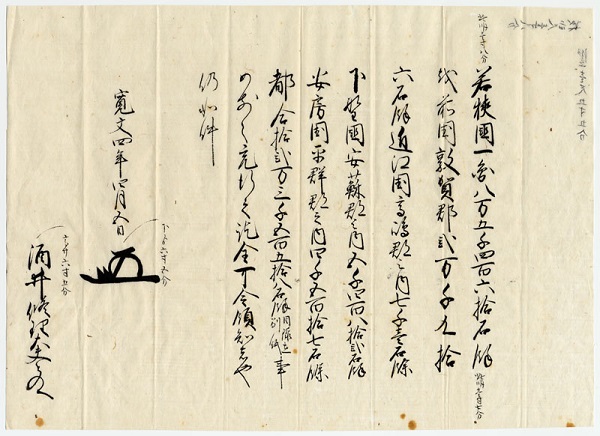 若狭國一圓八万五千四百六拾石餘
越前國敦賀郡貳万千九拾
六石餘近江國高嶋郡之内七千壹石餘
下野國安蘇郡之内五千四百八拾貳石餘
安房國平群郡之内四千五百拾七石餘
都合拾貳万三千五百五拾八石餘目録在別紙事
如前々充行之訖全可令領知者也
仍如件
寛文四年四月五日
酒井修理大夫とのへ